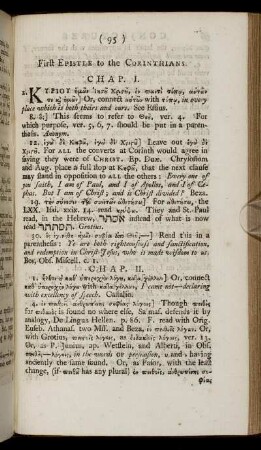 ( 95 )
First EPISTLE to the CORINTHIANS.
CHAP. I.
2. ΚΥΡΙΟΥ ἡμῶν Ἰησοῦ Χριστοῦ, ἐν παντὶ τόπῳ, αὐτῶν
τε καὶ ἡμῶν] Or, connect αὐτῶν with τόπῳ, in every
place which is both theirs and ours. See
8. ὃς] This seems to refer to Θεῷ, ver. 4. For
which purpose, ver. 5, 6, 7. should be put in a paren-
thesis. Anonym.
12. ἐγὼ δὲ Κηφᾶ, ἐγὼ δὲ
Χριστοῦ. For ALL the converts at Corinth would agree in
saying they were of CHRIST. Ep. Duæ. Chrysostom
and Aug. place a full stop at Κηφᾶ, that the next clause
may stand in opposition to ALL the others: Every one of
you saith, I am of Paul, and I of Apollos, and I of Ce-
phas. But I am of Christ; and is Christ divided? Beza.
19. τὴν σύνεσιν τῶν συνετῶν ἀθετήσω] For ἀθετήσω, the
LXX. Isai. xxix. 14. read κρύψω. They and St. Paul
read, in the Hebrew, אסתר instead of what is now
read הסתתר. Grotius.
30. Read this in a
parenthesis: Ye are both righteousness and sanctification,
and redemption in Christ Jesus, who is made wisdom to us.
Bos, Obs. Miscell. c. 1.
CHAP. II.
1. ἦλθον οὐ καθ' ὑπεροχὴν λόγου, καταγγέλλων] Or, connect
καθ' ὑπεροχὴν λόγου with καταγγέλλων, I came not—declaring
with excellency of speech. Castalio.
4. ἐν πειθοῖς ἀνθρωπίνης σοφίας λόγοις] Though πειθὸς for
πιθανὸς is found no where else, Salmas. defends it by
analogy, De Lingua Hellen. p. 86. F. read with Orig.
Euseb. Athanas. two MSS. and Beza, Or,
with Grotius, ver. 13.
Or, as P. Junius, ap. Wetstein, and Alberti, in Obs.
in the words or persuasion, and
having anciently the same sound. Or, as Faior, with the least
change, (if πειθὼ has any plural) ἐν πειθοῖς, ἀνθρωπίνης σο-
φίας